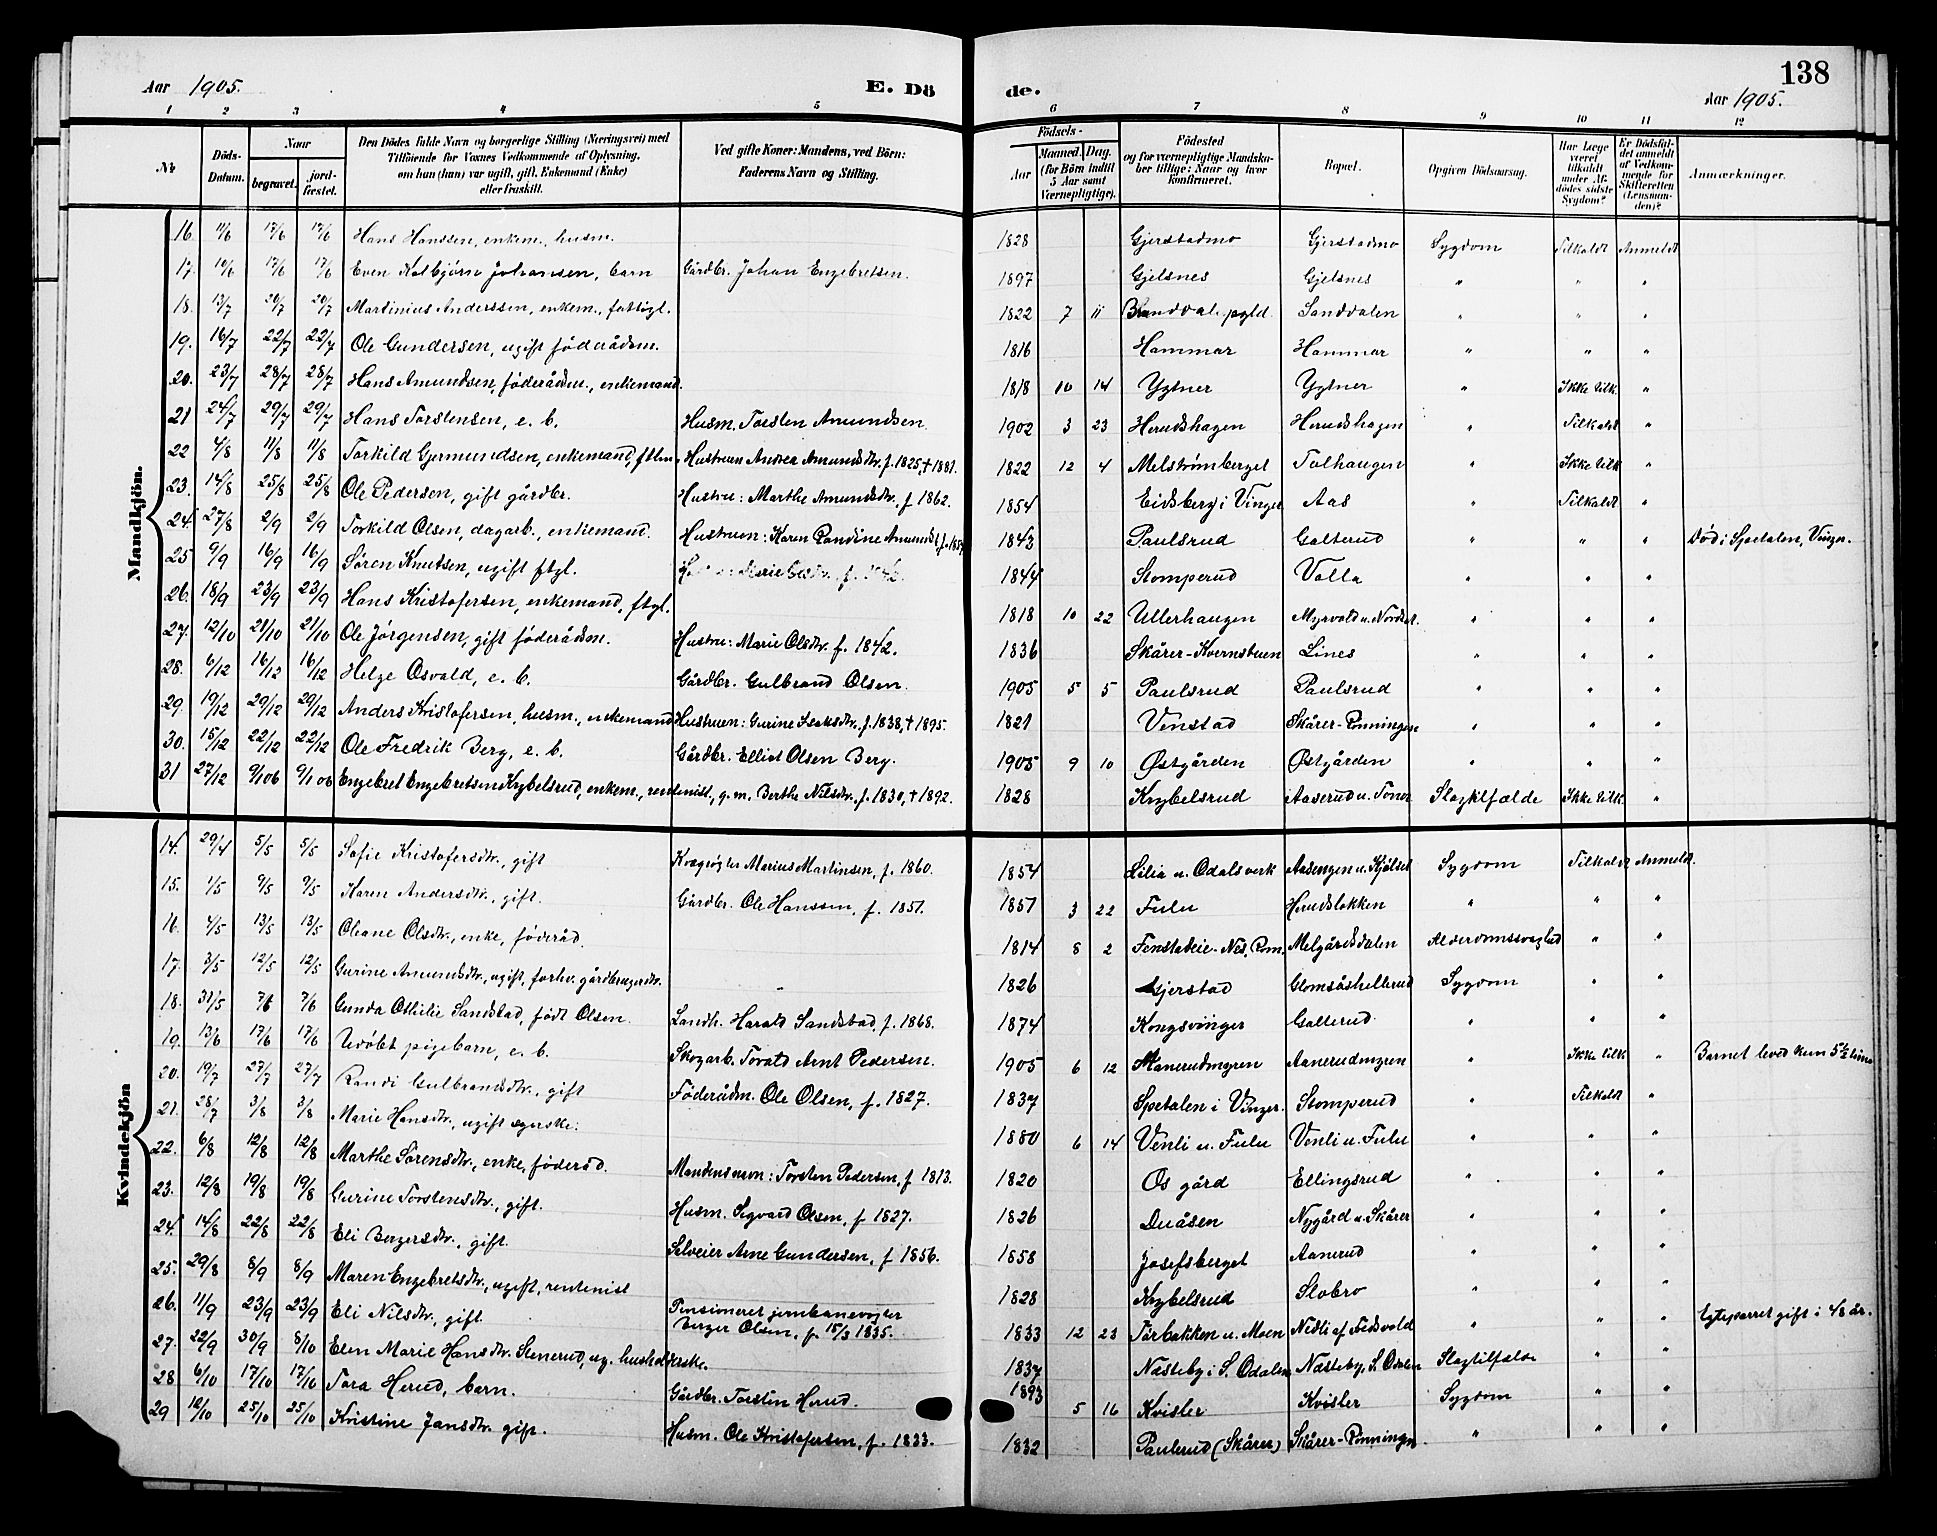 Aar 1905. E. Dö de. 138
Aar 1905.
1 2 3 4 5 6 7 8 9 10 11 12
No Döds-Datum. Naar begravet. jordfæstet. Den Dödes fulde Navn og borgerlige Stilling (Næringsvei) med Tilföiende for Voxnes Vedkommende af Oplysning, om hun (han) var ugift, gift, Enkemand (Enke) eller fraskilt. Ved gifte Koner: Mandens, ved Börn: Faderens Navn og Stilling. Födsels- Aar Maaned. Dag. (for Börn indtil 5 Aar samt Værnepligtige). Födested og for værnepligtige Mandskaber tillige: Naar og hvor konfirmeret. Bopæl. Opgiven Dödsaarsag. Har Læge været tilkaldt under Afdödes sidste Sygdom? Er Dödsfaldet anmeldt af Vedkommende for Skifteretten (Lensmanden)? Anmærkninger.
Mandkjön.
16. 11/6 17/6 17/6 Hans Hanssen, enkem., husm. 1828 Gjerstadmo Gjerstadmo Sygdom Tilkaldt Anmeldt
17. 10/6 17/6 17/6 Even Kolbjørn Johansen, barn Gårdbr. Johan Engebretsen. 1897 Gjelsnes Gjelsnes " " "
18. 13/7 20/7 20/7 Martinius Anderssen, enkem., fattigl. 1822 7 11 pgld. Sanddalen " " "
19. 16/7 22/7 22/7 Ole Gundersen, ugift föderådsm. 1816 Hammar Hammar " " "
20. 23/7 28/7 28/7 Hans Amundsen, föderådsm., enkemand. 1818 10 14 Ygtner Ygtner " Ikke tilk. "
21 24/7 29/7 29/7 Hans Torstensen, e. b. Husm. Torsten Amundsen. 1902 3 23 Herudshagen Herudshagen " Tilkaldt "
22 4/8 11/8 11/8 Torkild Gjermundsen, enkemand, ftlm. Hustruen Andrea Amundsdtr. f. 1825, † 1881. 1822 12 4 Melstrømberget Tolhaugen " Ikke tilk "
23. 14/8 25/8 25/8 Ole Pedersen, gift gårdbr. Hustru: Marthe Amundsdtr. f. 1862. 1854 Eidsberg i Vinger Aas " Tilkaldt "
24. 27/8 2/9 2/9 Torkild Olsen, dagarb., enkemand. Hustruen: Karen Randine Amundsd. f. 1843 Paulsrud Galterud " " " Död i Spetalen, Vinger.
25 9/9 16/9 16/9 Søren Knutsen, ugift ftgl. 1844 Stomperud Volla " " "
26. 18/9 23/9 23/9 Hans Kristofersen, enkemand, ftgl. 1818 10 22 Ullerhaugen Myrvold u. Nordset. " " "
27. 12/10 21/10 21/10 Ole Jörgensen, gift föderådsm. Hustru: Marie Olsdtr. f. 1842. 1836 Skårer-Kvernstuen Lines " " "
28. 6/12 16/12 16/12 Helge Osvald, e. b. Gårdbr. Gulbrand Olsen. 1905 5 5 Paulsrud Paulsrud " " "
29. 19/12 29/12 29/12 Anders Kristofersen, husm., enkemand Hustruen: Gurine Isaksdtr. f. 1838, † 1895. 1821 Venstad Skårer-Rönningen " " "
30. 15/12 22/12 22/12 Ole Fredrik Berg, e. b. Gårdbr. Elliot Olsen Berg. 1905 9 10 Østgården Østgården " " "
31 27/12 9/1 06 9/1 06 Engebret Engebretsen Krybelsrud, enkem., rentenist, g. m. Berthe Nilsdtr. f. 1830, † 1892. 1828 Krybelsrud i Aaserud u. Toner Slagtilfælde Ikke tilk. "
Kvindekjön
14. 29/4 5/5 5/5 Sofie Kristofersdtr., gift Kvægrøgter Marius Martinsen, f. 1860. 1854 Lilia u. Odals verk Aasengen u. Kjölset Sygdom Tilkaldt Anmeldt.
15. 1/5 9/5 9/5 Karen Andersdtr., gift. Gårdbr. Ole Hanssen, f. 1851. 1851 3 22 Fulu Herudslokken " " "
16. 4/5 13/5 13/5 Oleane Olsdtr., enke, föderåd. 1814 8 2 Fenstadeie-Ned. Rom. Melgårdsdalen Alderdomssvaghed " "
17. 3/5 12/5 12/5 Gurine Amundsdtr., ugift, forhv. gårdbrugerdtr. 1826 Gjerstad Glomsåshellerud Sygdom " "
18. 31/5 7/6 7/6 Gunda Othilie Sandstad, födt Olsen. Landh. Harald Sandstad, f. 1868. 1874 Kongsvinger Galterud. " " "
19. 13/6 17/6 17/6 Udöbt pigebarn, e. b. Skogarb. Torald Arnt Pedersen. 1905 6 12 Aanerudmyren Aanerudmyren " Ikke tilk " Barnet leved kun 5½ time
20. 19/7 27/7 27/7 Randi Gulbrandsdtr., gift Föderådm. Ole Olsen, f. 1827. 1837 Spetalen i Vinger. Stomperud " Tilkaldt "
21. 28/7 3/8 3/8 Marie Hansdtr., ugift syerske. 1880 6 14 Venli u. Fulu Venli u. Fulu " " "
22. 6/8 12/8 12/8 Marthe Sörensdtr., enke, föderåd. Mandens navn: Torsten Pedersen, f 1813. 1820 Os gård Ellingsrud " " "
23. 12/8 19/8 19/8 Gurine Torstensdtr., gift. Husm. Sigvard Olsen, f 1827. 1826 Duåsen Nygård u. Skårer " " "
24. 14/8 22/8 22/8 Eli Bergersdtr., gift. Selveier Arne Gundersen, f 1856. 1858 Josefsberget Aanerud " " "
25. 29/8 8/9 8/9 Maren Engebretsdtr., ugift, rentenist 1828 Krybelsrud Slobro " " "
26. 11/9 23/9 23/9 Eli Nilsdtr., gift. Pensioneret jernbanevogter Berger Olsen, f. 15/3 1835. 1833 12 23 Tørbakken u. Moen Nedli af Eidsvold " " " Egteparret gift i 48 år.
27. 22/9 30/9 8/10 Elen Marie Hansdtr. Stenerud, ug. husholderske. 1837 Næsteby i S. Odalen Næsteby, S. Odalen Slagtilfælde " "
28 6/10 17/10 17/10 Tora Herud, barn. Gårdbr. Torstein Herud. 1893 5 16 Kvisler Kvisler Sygdom " "
29 12/10 25/10 25/10 Kristine Jansdtr. gift. Husm. Ole Kristofersen, f. 1833. 1832 Paulsrud (Skårer) Skårer-Rönningen. " " "